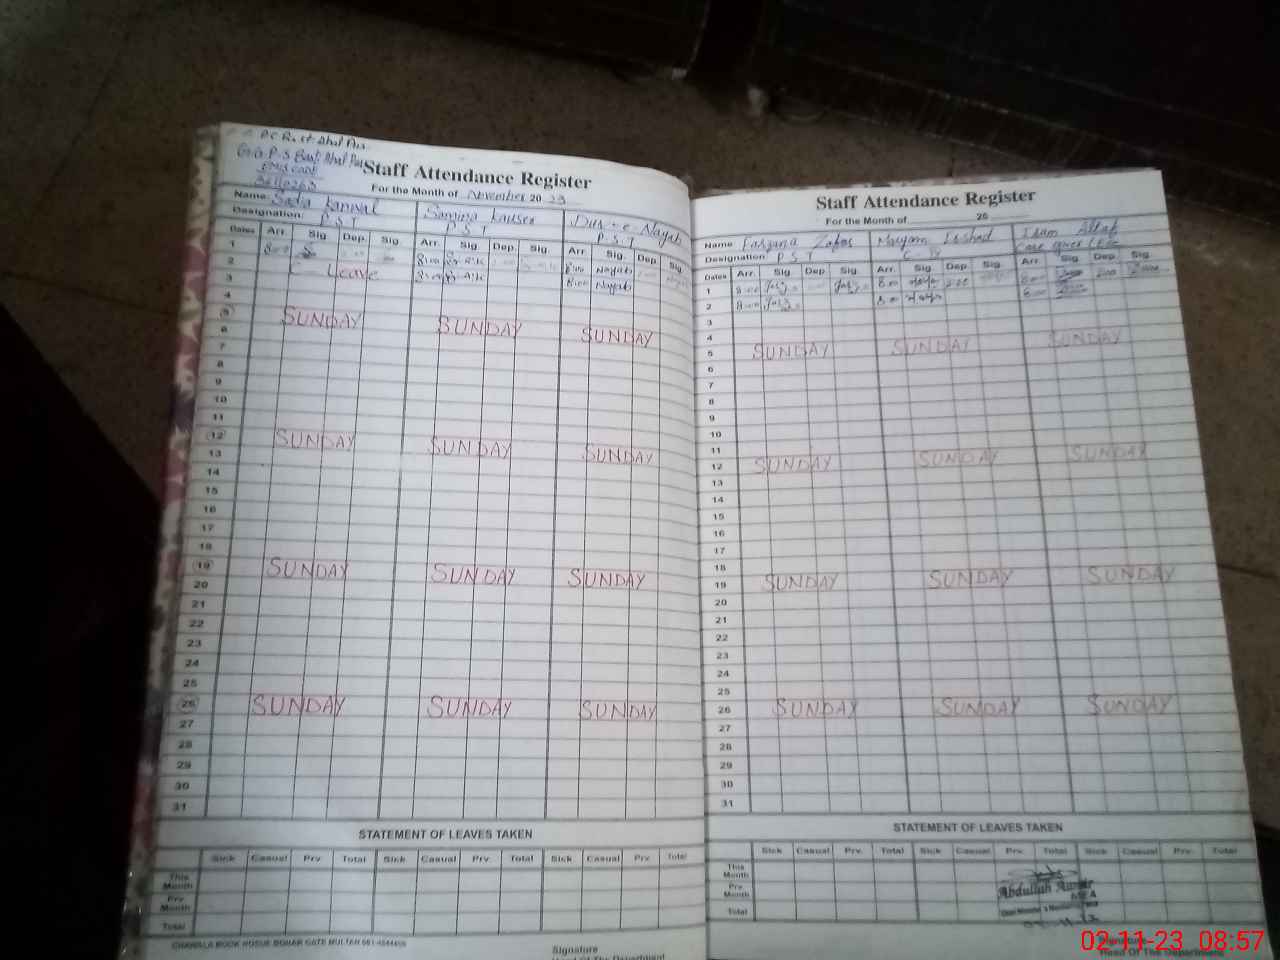 Staff Attendance Register
For the Month of November 2023
Name: Sadia Kanwal
Samina Kausar
Dur-e-Nayab
Designation: P S T
P S T
P S T
Dates Arr. Sig. Dep. Sig. Arr. Sig. Dep. Sig. Arr. Sig. Dep. Sig.
1 8:00 8:00 8:00 Nayab
2 Leave 8:00 8:00 Nayab
3
4
5 SUNDAY SUNDAY SUNDAY
6
7
8
9
10
11
12 SUNDAY SUNDAY SUNDAY
13
14
15
16
17
18
19 SUNDAY SUNDAY SUNDAY
20
21
22
23
24
25
26 SUNDAY SUNDAY SUNDAY
27
28
29
30
31
STATEMENT OF LEAVES TAKEN
Sick Casual Prv. Total Sick Casual Prv. Total Sick Casual Prv. Total
This Month
Prv. Month
Total
Signature
Head Of The Department
Staff Attendance Register
For the Month of 20
Name Farzana Zafar Maryam Irshad Altaf
Designation P S T Care giver
Dates Arr. Sig. Dep. Sig. Arr. Sig. Dep. Sig. Arr. Sig. Dep. Sig.
1 8:00 8:00 2:00 8:00 2:00
2 8:00 8:00 8:00
3
4
5 SUNDAY SUNDAY SUNDAY
6
7
8
9
10
11
12 SUNDAY SUNDAY SUNDAY
13
14
15
16
17
18
19 SUNDAY SUNDAY SUNDAY
20
21
22
23
24
25
26 SUNDAY SUNDAY SUNDAY
27
28
29
30
31
STATEMENT OF LEAVES TAKEN
Sick Casual Prv. Total Sick Casual Prv. Total Sick Casual Prv. Total
This Month
Prv. Month
Total
Abdullah
Signature
Head Of The Department
02-11-23 08:57